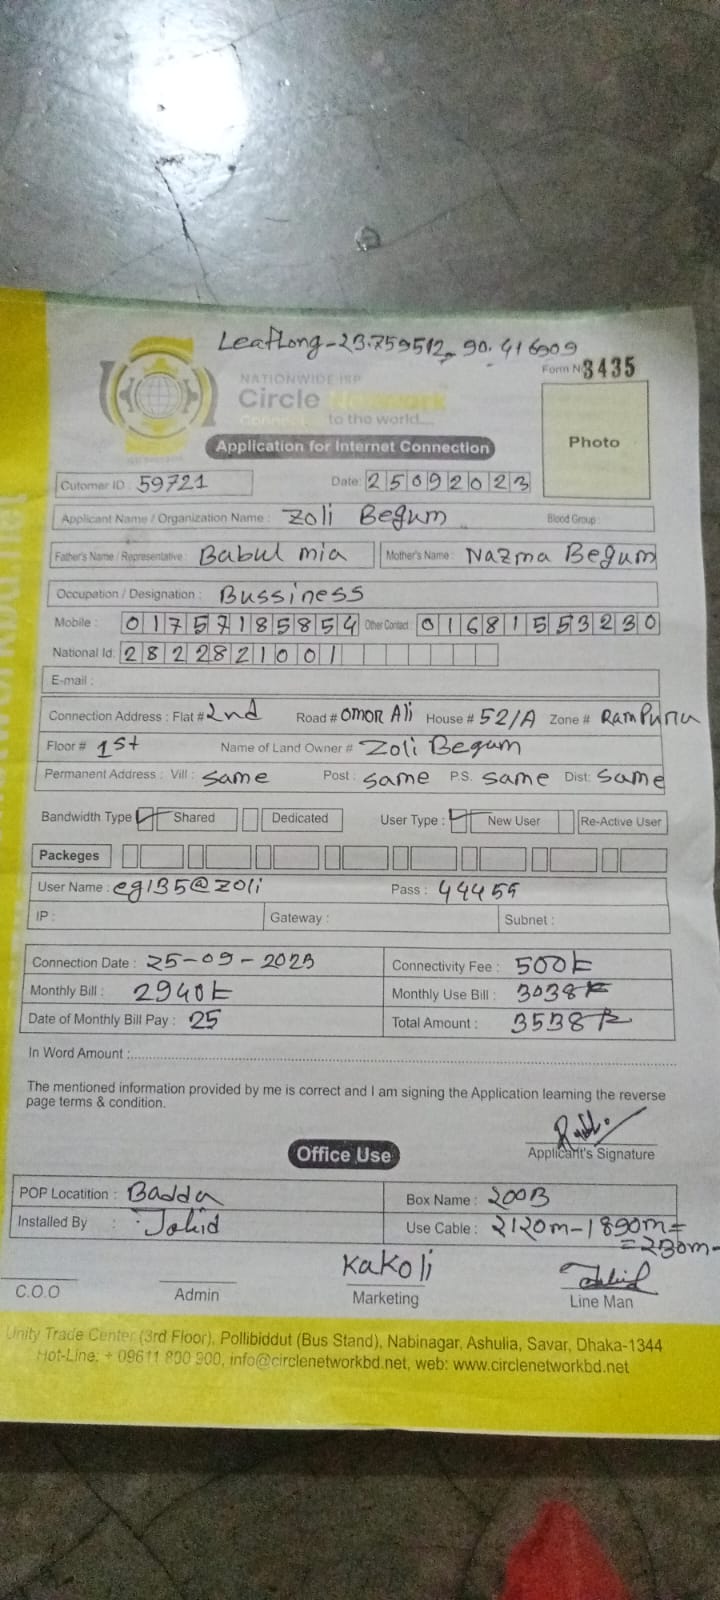 Leaflong-23.759512, 90.416909
NATIONWIDE ISP
Form N 3435
Circle Network
Connect to the world...
Photo
Application for Internet Connection
Cutomer ID : 59721 Date: 25092023
Applicant Name / Organization Name : Zoli Begum Blood Group :
Father's Name / Representative : Babul mia Mother's Name : Nazma Begum
Occupation / Designation : Bussiness
Mobile : 01757185854 Other Contact : 01681553230
National Id: 2822821001
E-mail :
Connection Address : Flat # 2nd Road # Omor Ali House # 52/A Zone # Rampura
Floor # 1st Name of Land Owner # Zoli Begum
Permanent Address : Vill : same Post : same P.S. same Dist: same
Bandwidth Type Shared Dedicated User Type : New User Re-Active User
Packeges
User Name : eg135@zoli Pass : 44455
IP : Gateway : Subnet :
Connection Date : 25-09-2023 Connectivity Fee : 500৳
Monthly Bill : 2940৳ Monthly Use Bill : 3038৳
Date of Monthly Bill Pay : 25 Total Amount : 3538৳
In Word Amount :
The mentioned information provided by me is correct and I am signing the Application learning the reverse
page terms & condition.
Applicant's Signature
Office Use
POP Locatition : Badda Box Name : 200B
Installed By : Jahid Use Cable : 2120m-1890m=
=230m-
Kakoli
C.O.O Admin Marketing Line Man
Unity Trade Center (3rd Floor), Pollibiddut (Bus Stand), Nabinagar, Ashulia, Savar, Dhaka-1344
Hot-Line: + 09611 800 900, info@circlenetworkbd.net, web: www.circlenetworkbd.net